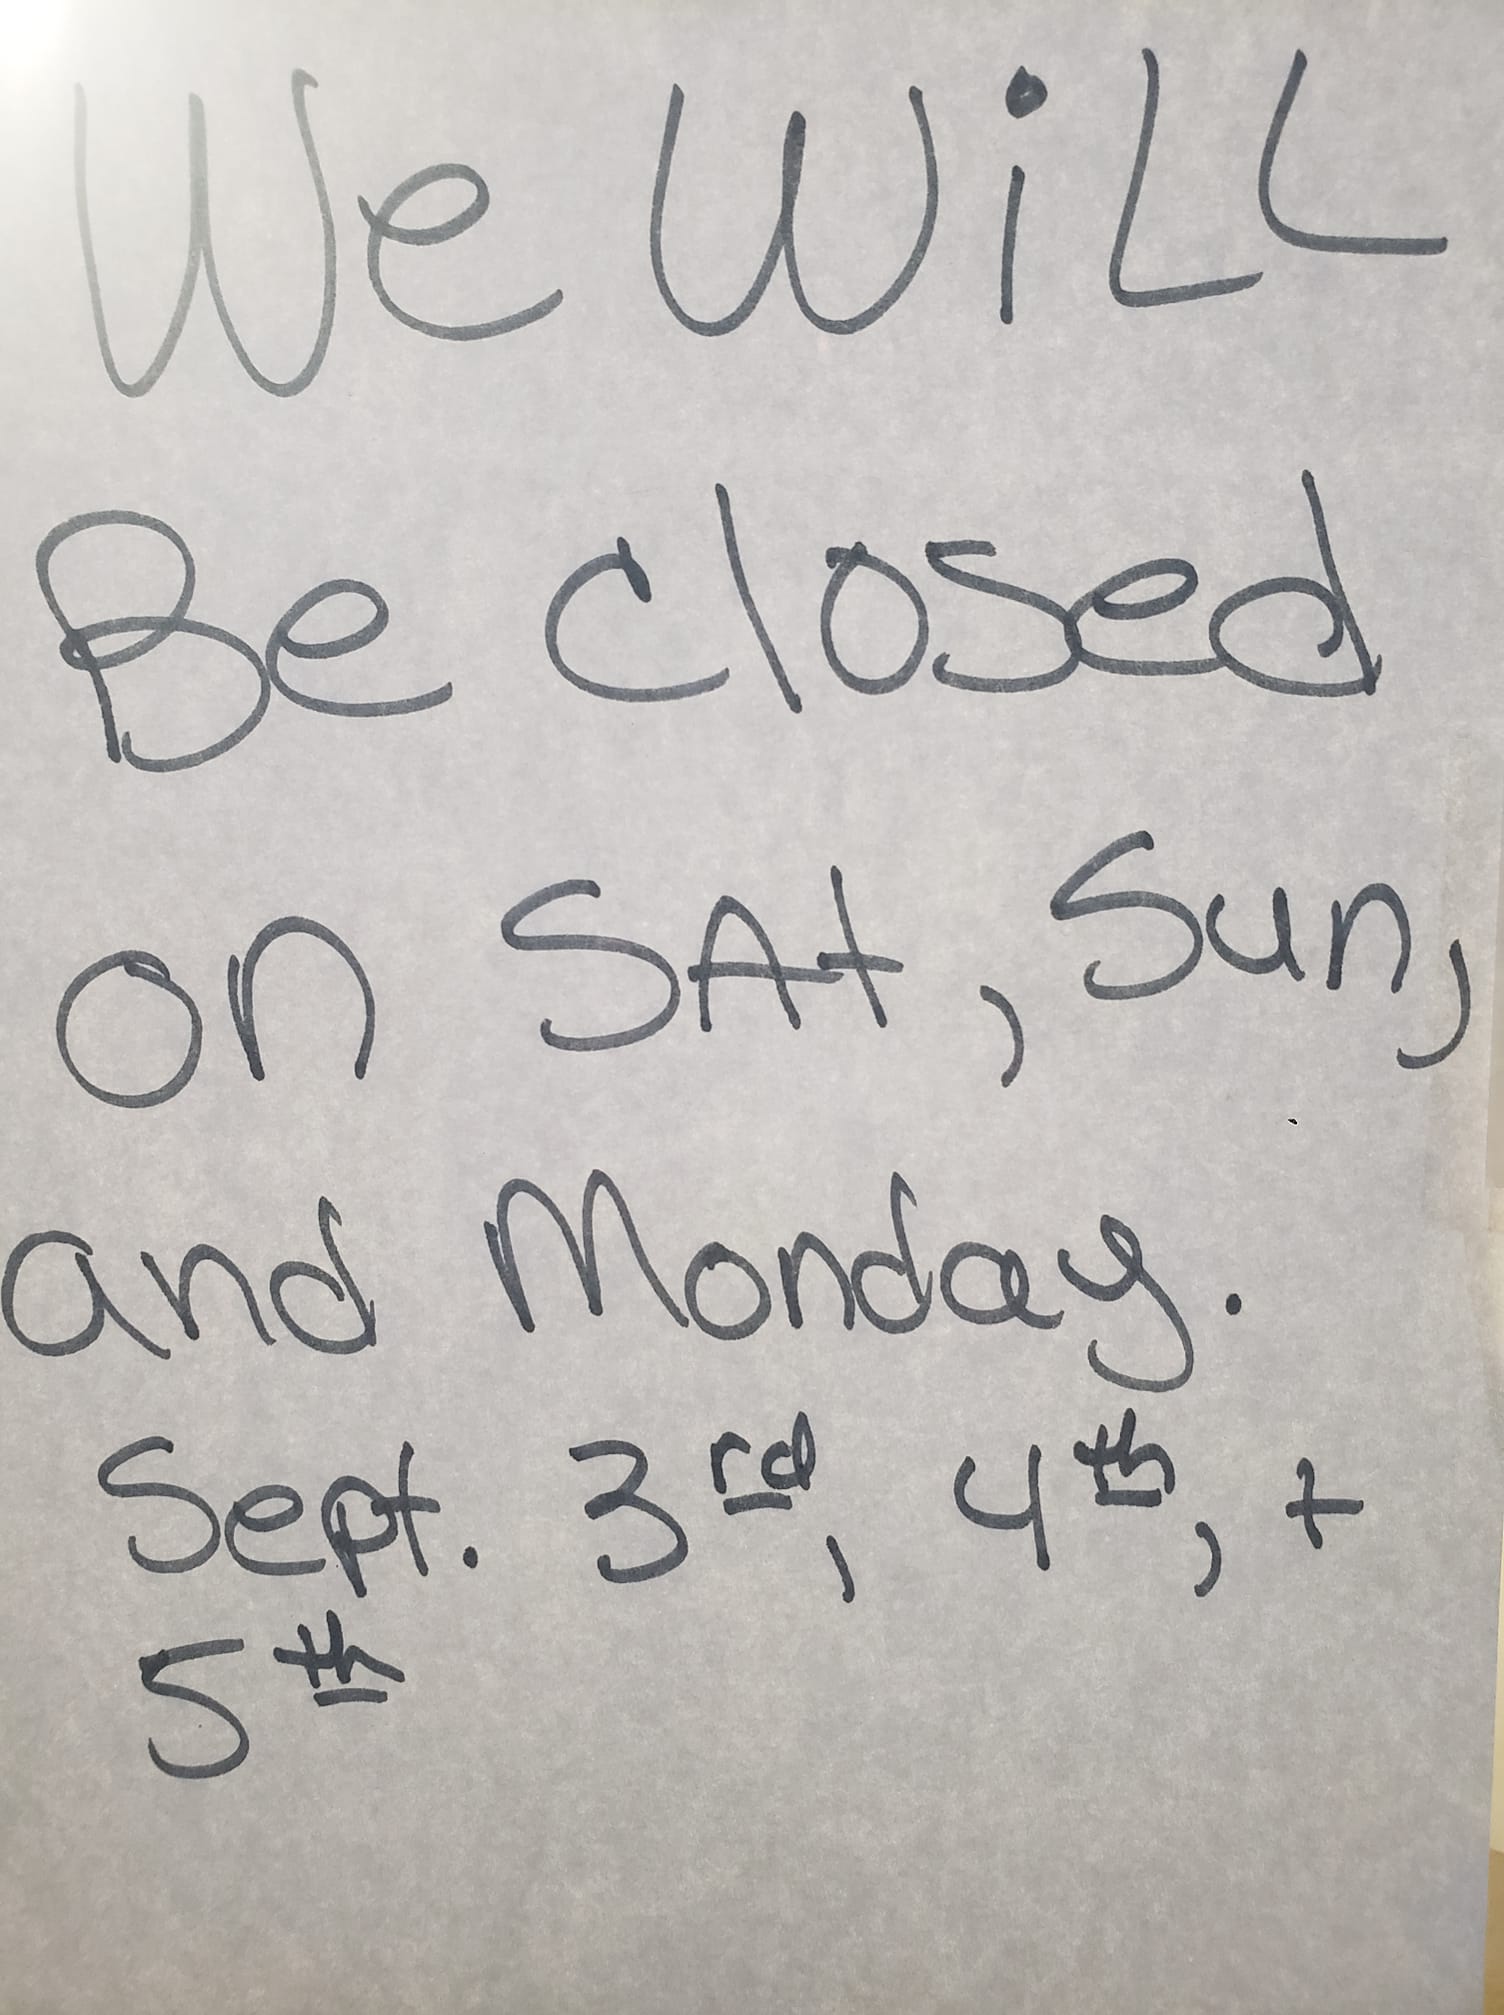 We WiLL
Be closed
on SAt, Sun,
and Monday.
Sept. 3rd, 4th, +
5th